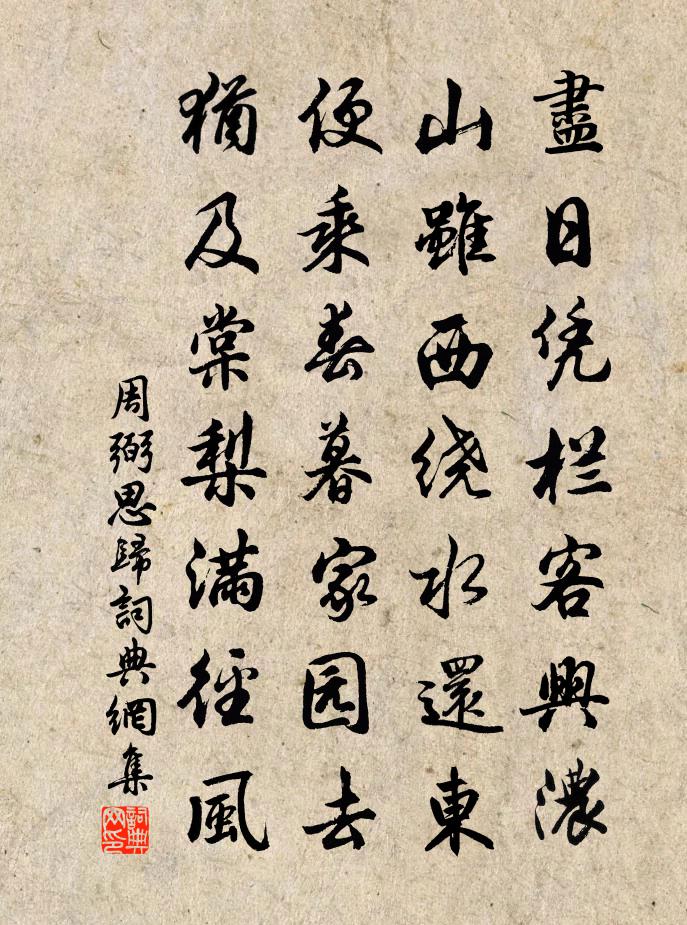 盡日凭栏客興濃
山雖西绕水還東
便乘春暮家园去
猶及棠梨满徑風
周弼思歸詞典網集
詞典网印